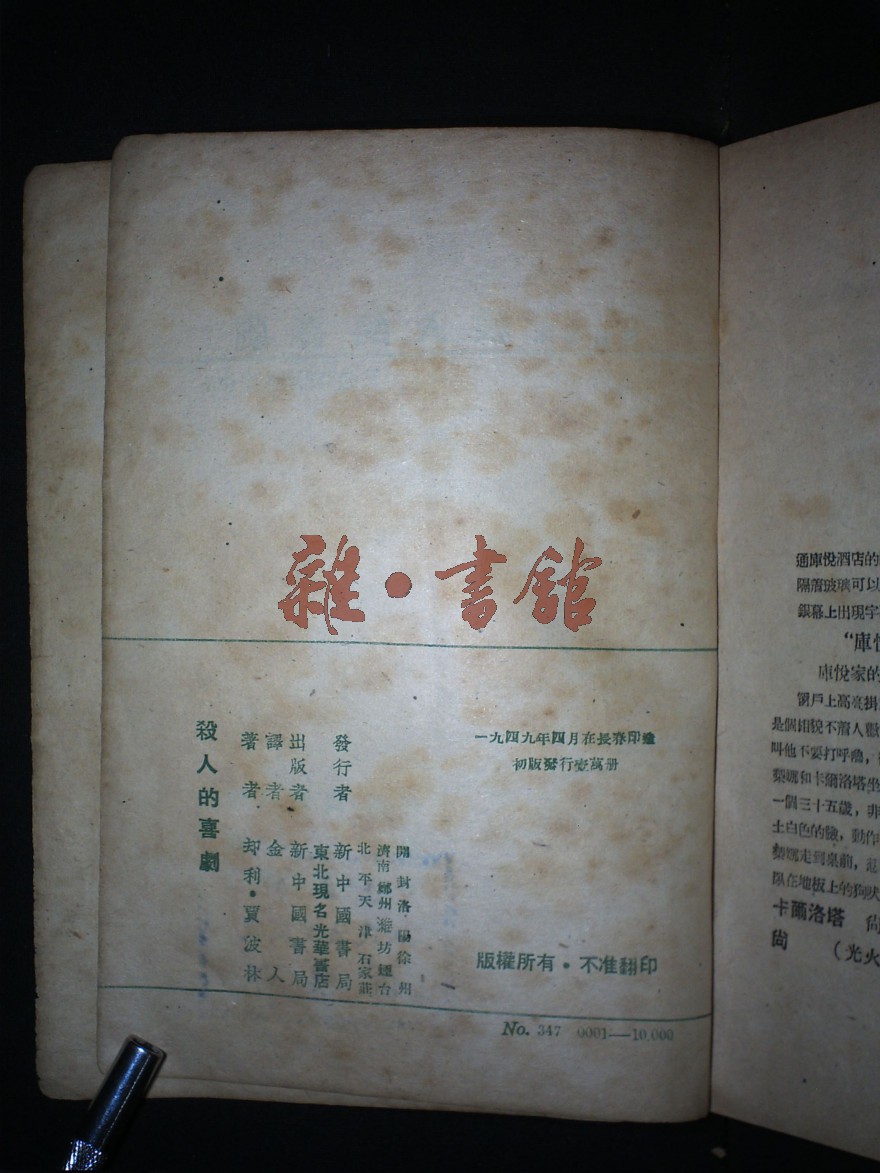 雜·書館
一九四九年四月在長春印造
初版發行壹萬册
殺人的喜劇
著者 却利·賈波林
譯者 金人
出版者 新中國書局
東北現名光華書店
發行者 新中國書局
北平 天津 石家莊
濟南 鄭州 濰坊 煙台
開封 洛陽 徐州
版權所有·不准翻印
No. 347 0001—10,000
通庫悅酒店的
隔着玻璃可以
銀幕上出現字
“庫悅
庫悅家的
窗戶上高亮掛
是個相貌不
叫他不要打呼嚕,
葉娜和卡爾洛塔坐
一個三十五歲,非
土白色的臉,動作
葉娜走到桌前,
限在地板上的狗吠
卡爾洛塔 尙
尙 (光火